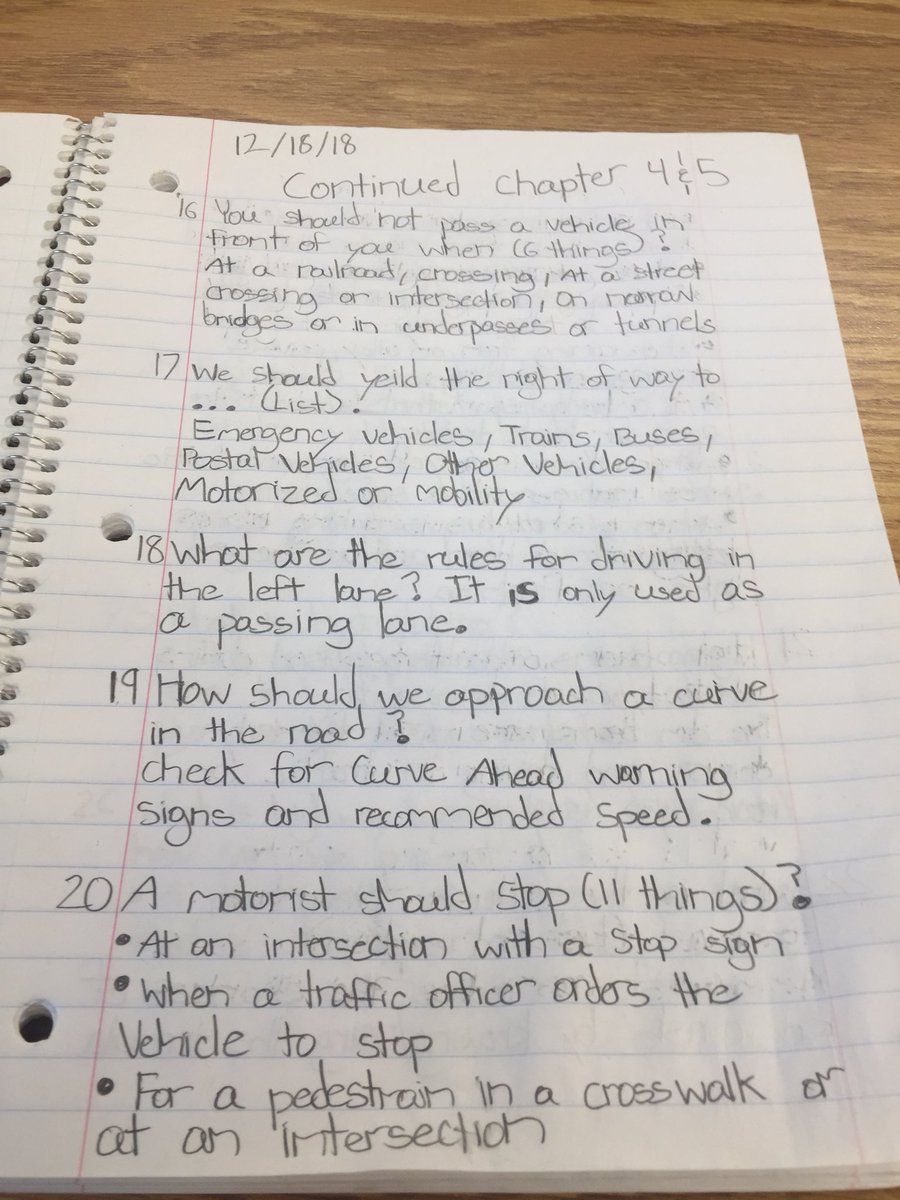 12/18/18
Continued Chapter 4 & 5
16 You should not pass a vehicle in
front of you when (6 things)?
At a railroad, crossing, At a street
crossing or intersection, on narrow
bridges or in underpasses or tunnels
17 We should yeild the right of way to
... (List).
Emergency vehicles, Trains, Buses,
Postal Vehicles, Other Vehicles,
Motorized or mobility
18 What are the rules for driving in
the left lane? It is only used as
a passing lane.
19 How should we approach a curve
in the road?
check for Curve Ahead warning
signs and recommended speed.
20 A motorist should stop (11 things)?
• At an intersection with a stop sign
• When a traffic officer orders the
Vehicle to stop
• For a pedestrain in a crosswalk or
at an intersection